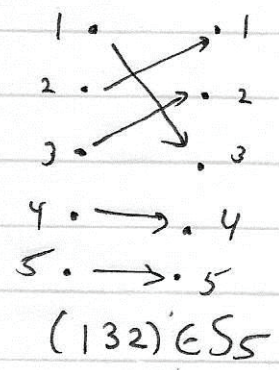 1 1
2 2
3 3
4 4
5 5
(132) ∈ S₅